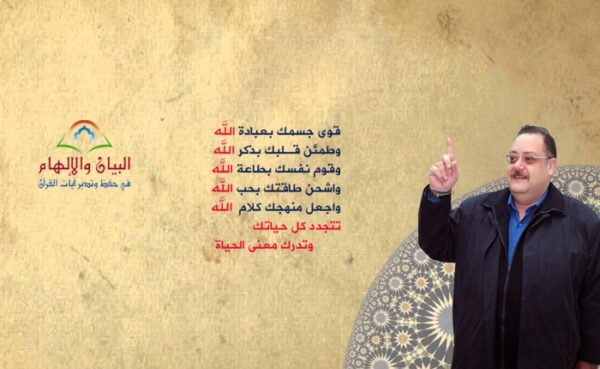 البيان والإلهام
في حفظ وتدبر آيات القرآن
قوى جسمك بعبادة الله
وطمئن قلبك بذكر الله
وقوم نفسك بطاعة الله
واشحن طاقتك بحب الله
واجعل منهجك كلام الله
تتجدد كل حياتك
وتدرك معنى الحياة